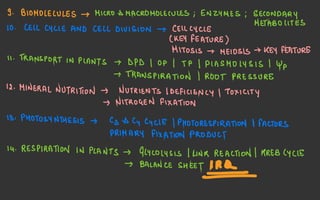 9. BIOMOLECULES → MICRO & MACROMOLECULES ; ENZYMES ; SECONDARY METABOLITES
10. CELL CYCLE AND CELL DIVISION → CELL CYCLE
(KEY FEATURE)
MITOSIS → MEIOSIS → KEY FEATURE
11. TRANSPORT IN PLANTS → DPD | OP | TP | PLASMOLYSIS | Ψp
→ TRANSPIRATION | ROOT PRESSURE
12. MINERAL NUTRITION → NUTRIENTS | DEFICIENCY | TOXICITY
→ NITROGEN FIXATION
13. PHOTOSYNTHESIS → C3 & C4 CYCLE | PHOTORESPIRATION | FACTORS
PRIMARY FIXATION PRODUCT
14. RESPIRATION IN PLANTS → GLYCOLYSIS | LINK REACTION | KREB CYCLE
→ BALANCE SHEET